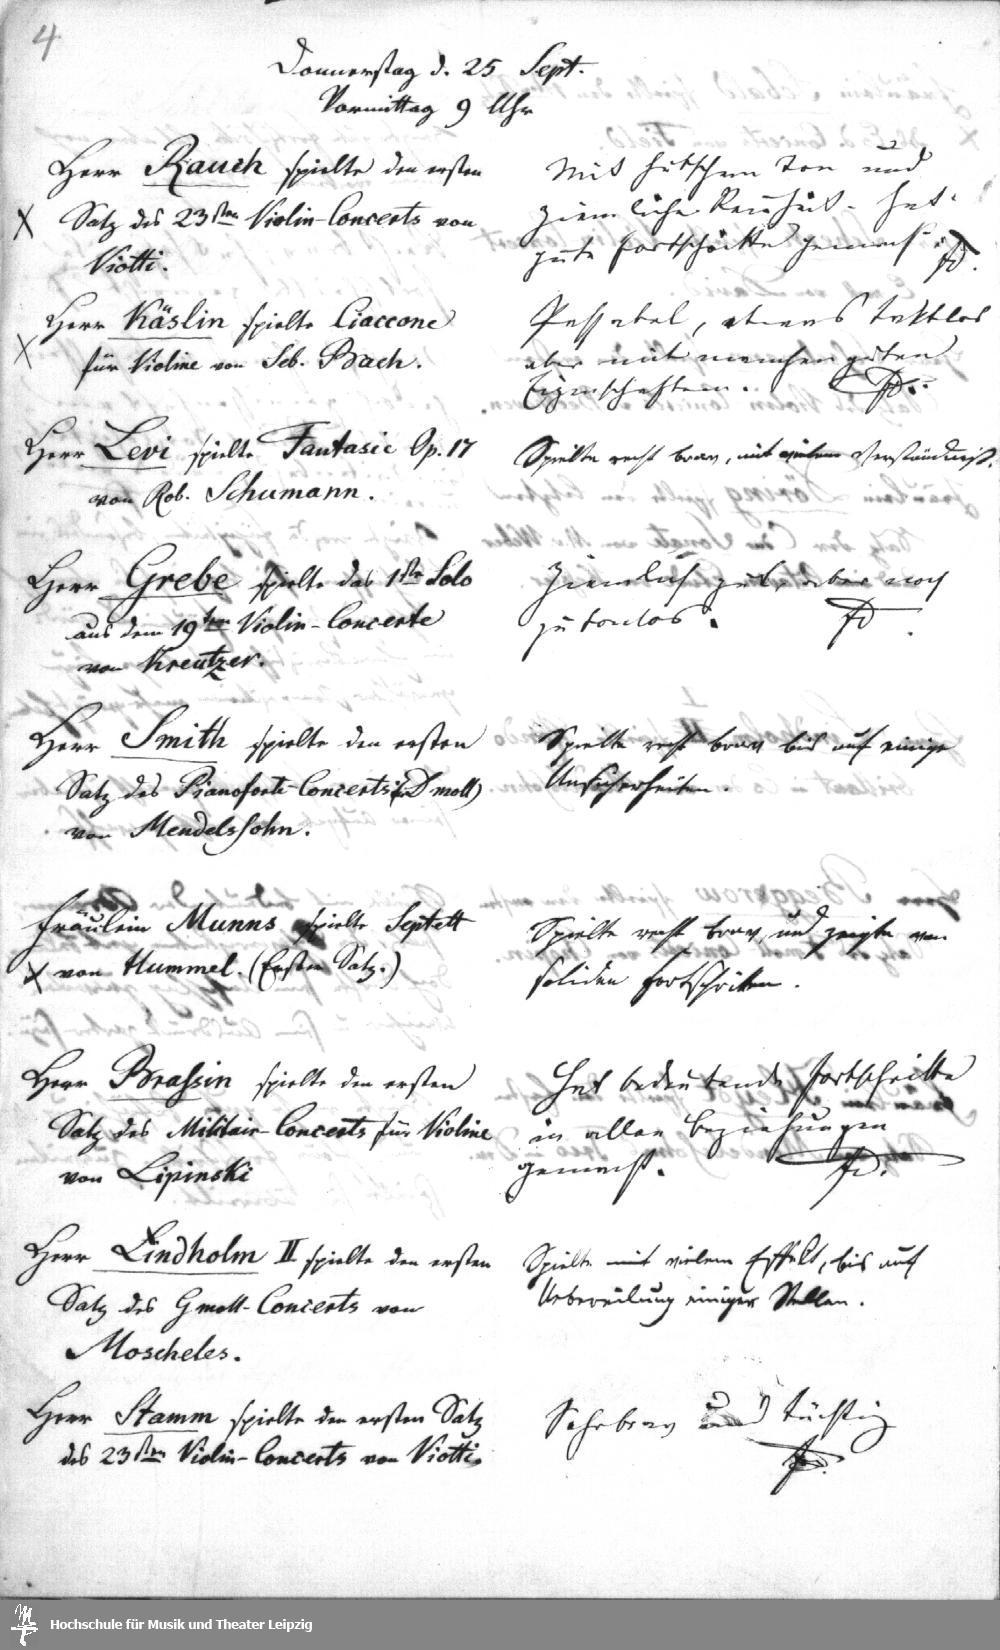 4
Donnerstag d. 25 Sept.
Vormittag 9 Uhr
Herr Rauch spielte den ersten
X Satz des 23sten Violin-Concerts von
Viotti.
Mit hübschem Ton und
ziemliche Reinheit - hat
gute Fortschritte gemacht. FD.
Herr Käslin spielte Ciaccone
X für Violine von Seb. Bach.
Passabel, etwas taktlos
aber mit manchen guten
Eigenschaften. FD.
Herr Levi spielte Fantasie Op. 17
von Rob. Schumann.
Spielte recht brav, mit vielem Verständniß.
Herr Grebe spielte das 1ste Solo
aus dem 19ten Violin-Concerte
von Kreutzer.
Ziemlich gut, aber noch
zu tonlos. FD.
Herr Smith spielte den ersten
Satz des Pianoforte-Concerts (in D moll)
von Mendelssohn.
Spielte recht brav bis auf einige
Unsicherheiten.
Fräulein Munns spielte Septett
X von Hummel. (Ersten Satz.)
Spielte recht brav, und zeigte von
soliden Fortschritten.
Herr Brassin spielte den ersten
Satz des Militair-Concerts für Violine
von Lipinski
Hat bedeutende Fortschritte
in allen Beziehungen
gemacht. FD.
Herr Lindholm II spielte den ersten
Satz des G moll-Concerts von
Moscheles.
Spielte mit vielem Effekt, bis auf
Uebereilung einiger Stellen.
Herr Stamm spielte den ersten Satz
des 23sten Violin-Concerts von Viotti.
Sehr brav und tüchtig
FD.
Hochschule für Musik und Theater Leipzig